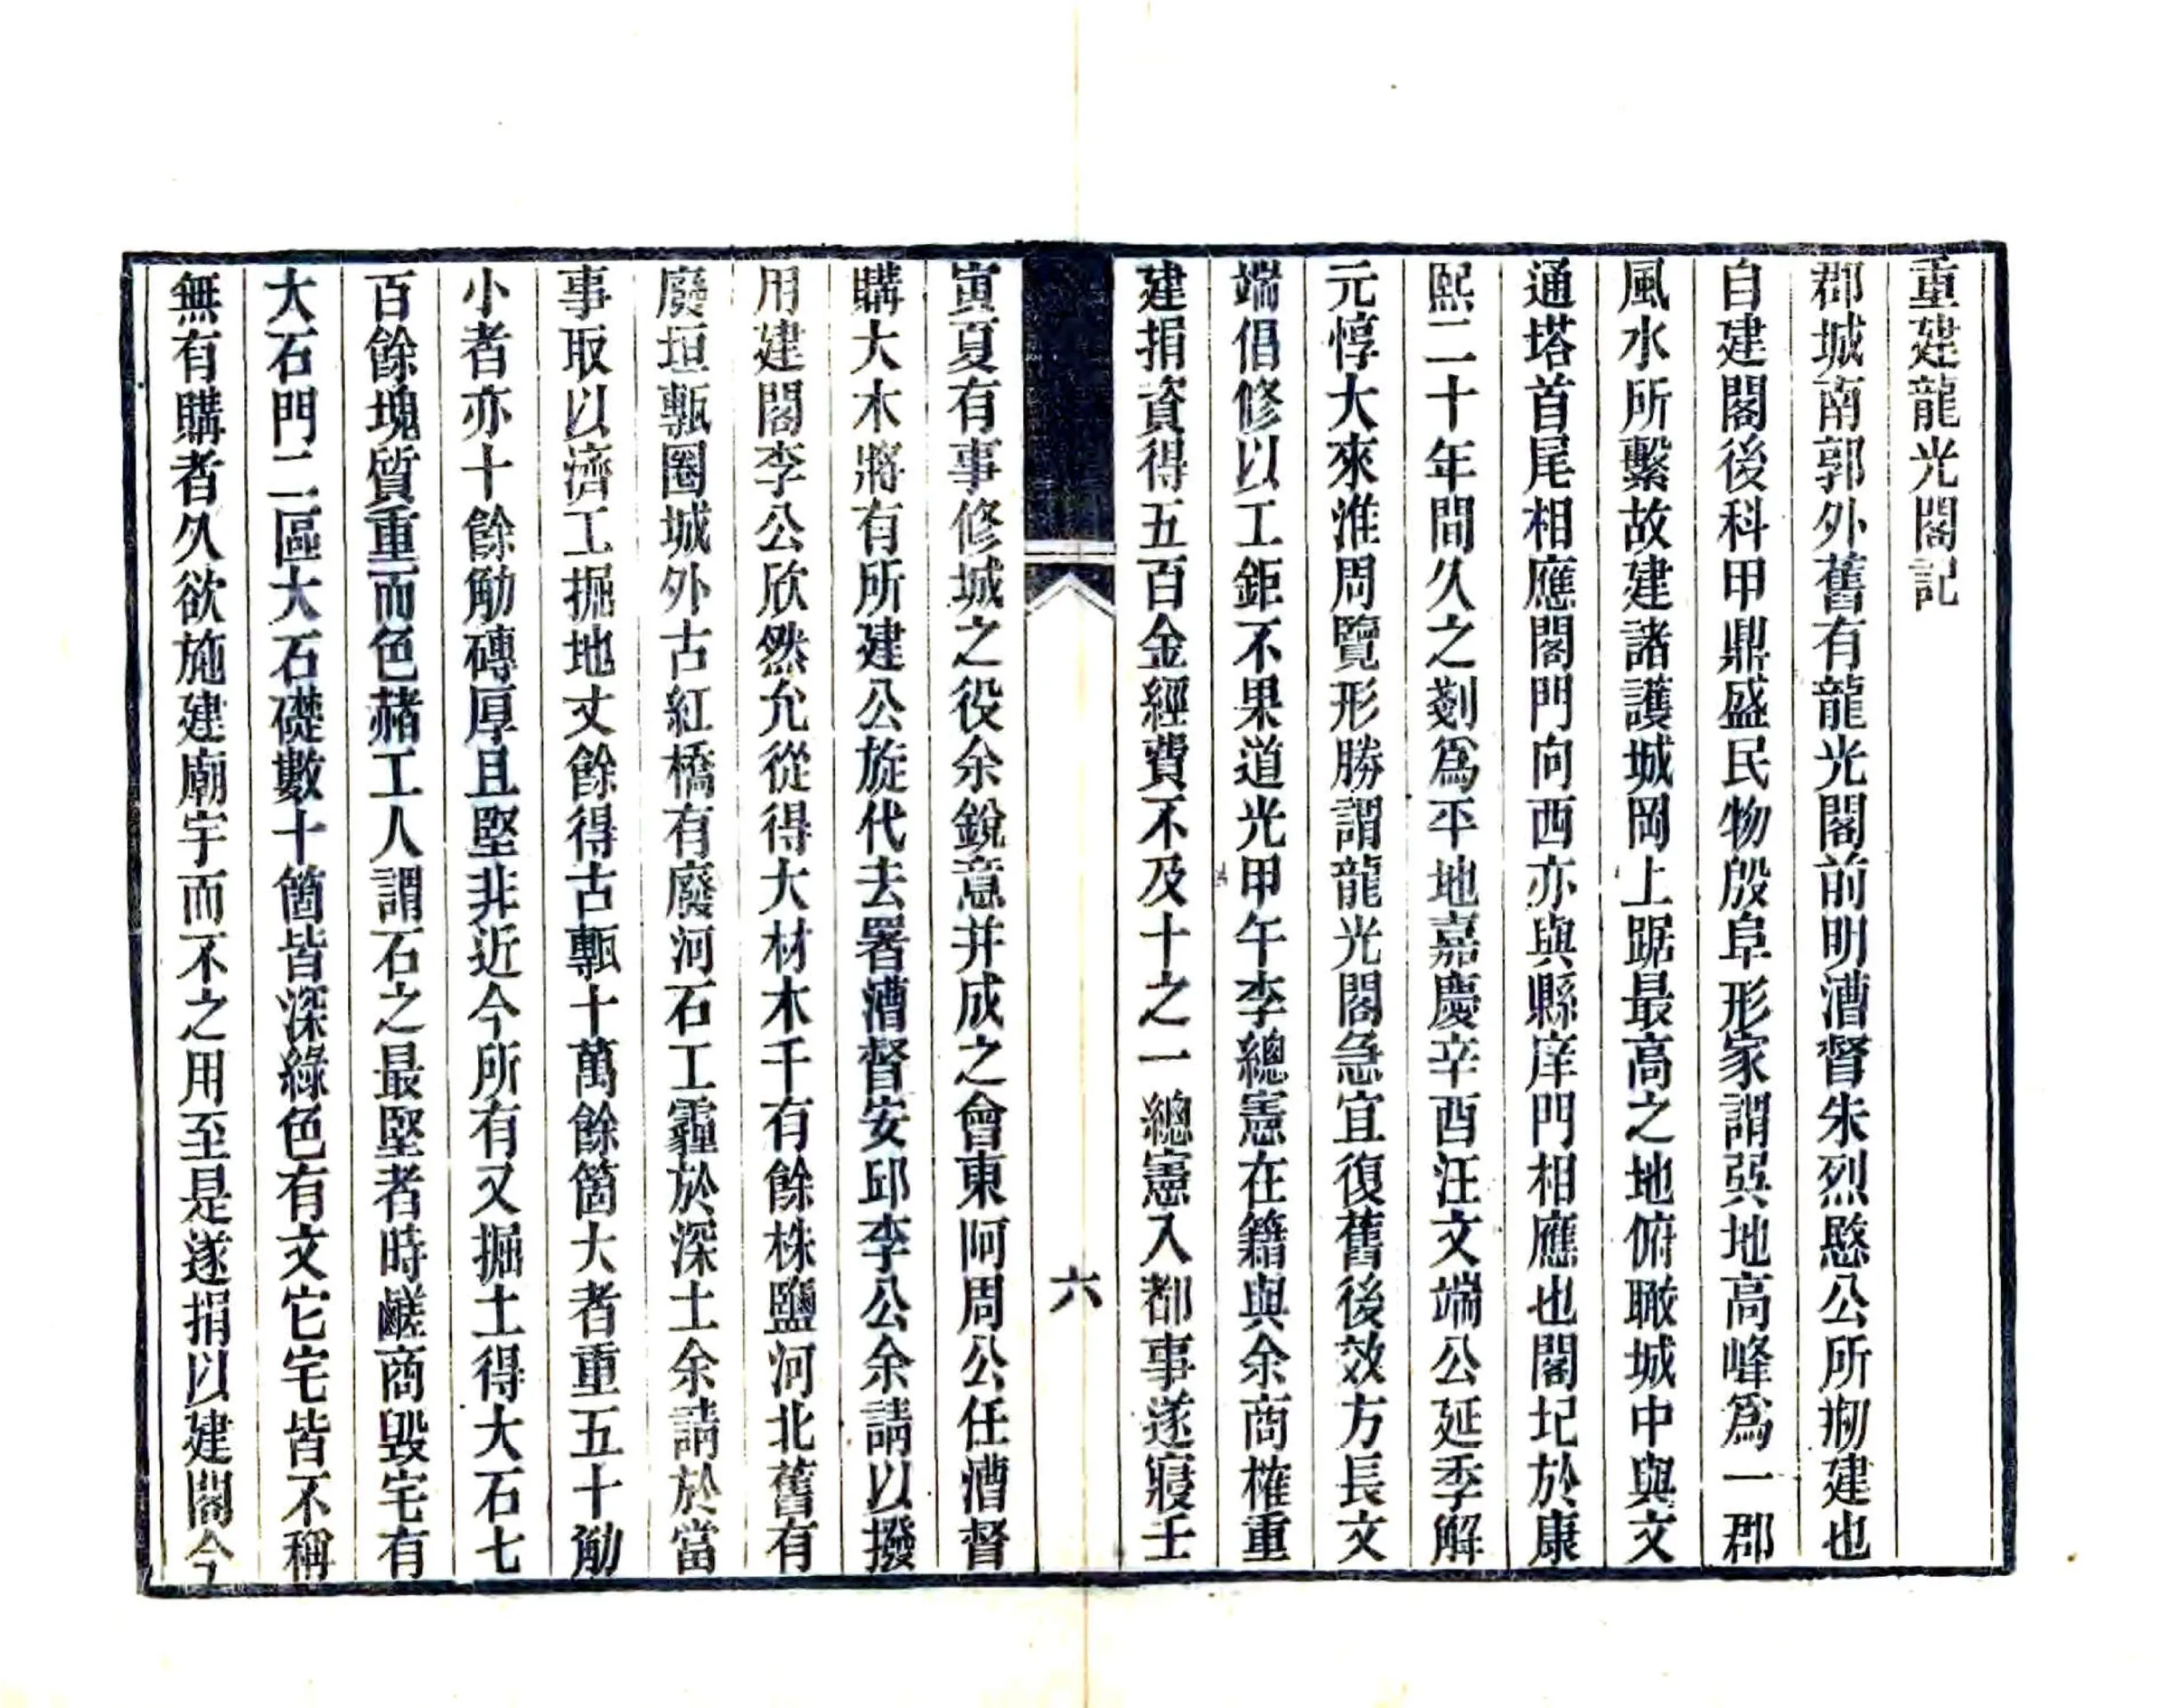 重建龍光閣記
郡城南郭外舊有龍光閣前明漕督朱烈愍公所剏建也
自建閣後科甲鼎盛民物殷阜形家謂巽地高峰爲一郡
風水所繫故建諸護城岡上踞最高之地俯瞰城中與文
通塔首尾相應閣門向西亦與縣庠門相應也閣圮於康
熙二十年間久之剗爲平地嘉慶辛酉汪文端公延季解
元惇大來淮周覽形勝謂龍光閣急宜復舊後效方長文
端倡修以工鉅不果道光甲午李總憲在籍與余商榷重
建捐資得五百金經費不及十之一總憲入都事遂寢壬
六
寅夏有事修城之役余銳意并成之會東阿周公任漕督
購大木將有所建公旋代去署漕督安邱李公余請以撥
用建閣李公欣然允從得大材木千有餘株鹽河北舊有
廢垣甎圈城外古紅橋有廢河石工霾於深土余請於當
事取以濟工掘地丈餘得古甎十萬餘箇大者重五十觔
小者亦十餘觔磚厚且堅非近今所有又掘土得大石七
百餘塊質重而色赭工人謂石之最堅者時鹺商毀宅有
大石門二區大石礎數十箇皆深綠色有文它宅皆不稱
無有購者久欲施建廟宇而不之用至是遂捐以建閣今